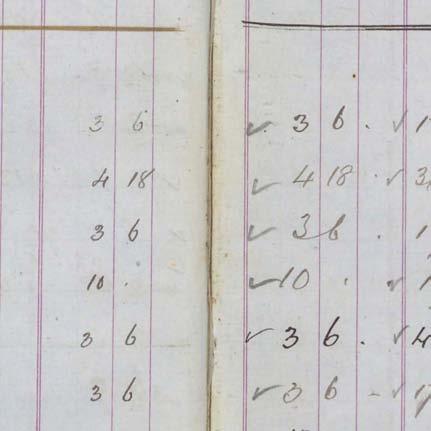 3 6 ✓ 3 6 . ✓ 1
4 18 ✓ 4 18 . ✓ 3
3 6 ✓ 3 6 . 1
10 . ✓ 10 . ✓ 1
3 6 ✓ 3 6 . ✓ 4
3 6 ✓ 3 6 - ✓ 17